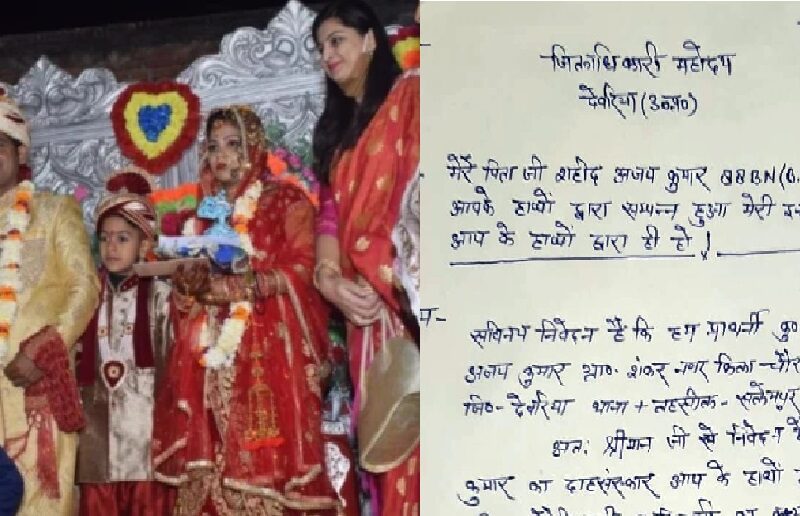 जिलाधिकारी महोदय
देवरिया (उ०प्र०)
मेरे पिता जी शहीद अजय कुमार 88BN(
आपके हाथों द्वारा सम्पन्न हुआ मेरी
आप के हाथों द्वारा ही हो।
सविनय निवेदन है कि हम प्रार्थनी
अजय कुमार ग्रा० शंकर नगर किला -
जि०- देवरिया थाना + तहसील - सलेमपुर
अतः श्रीमान जी से निवेदन
कुमार का दाहसंस्कार आप के हाथों